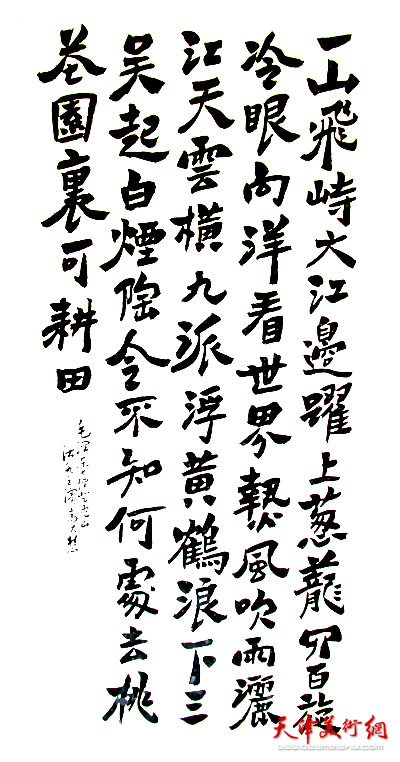 一山飛峙大江邊躍上葱蘢四百旋
冷眼向洋看世界熱風吹雨灑
江天雲橫九派浮黃鶴浪下三
吳起白煙陶令不知何處去桃
花園裏可耕田
毛澤東七律登廬山
天津美術網